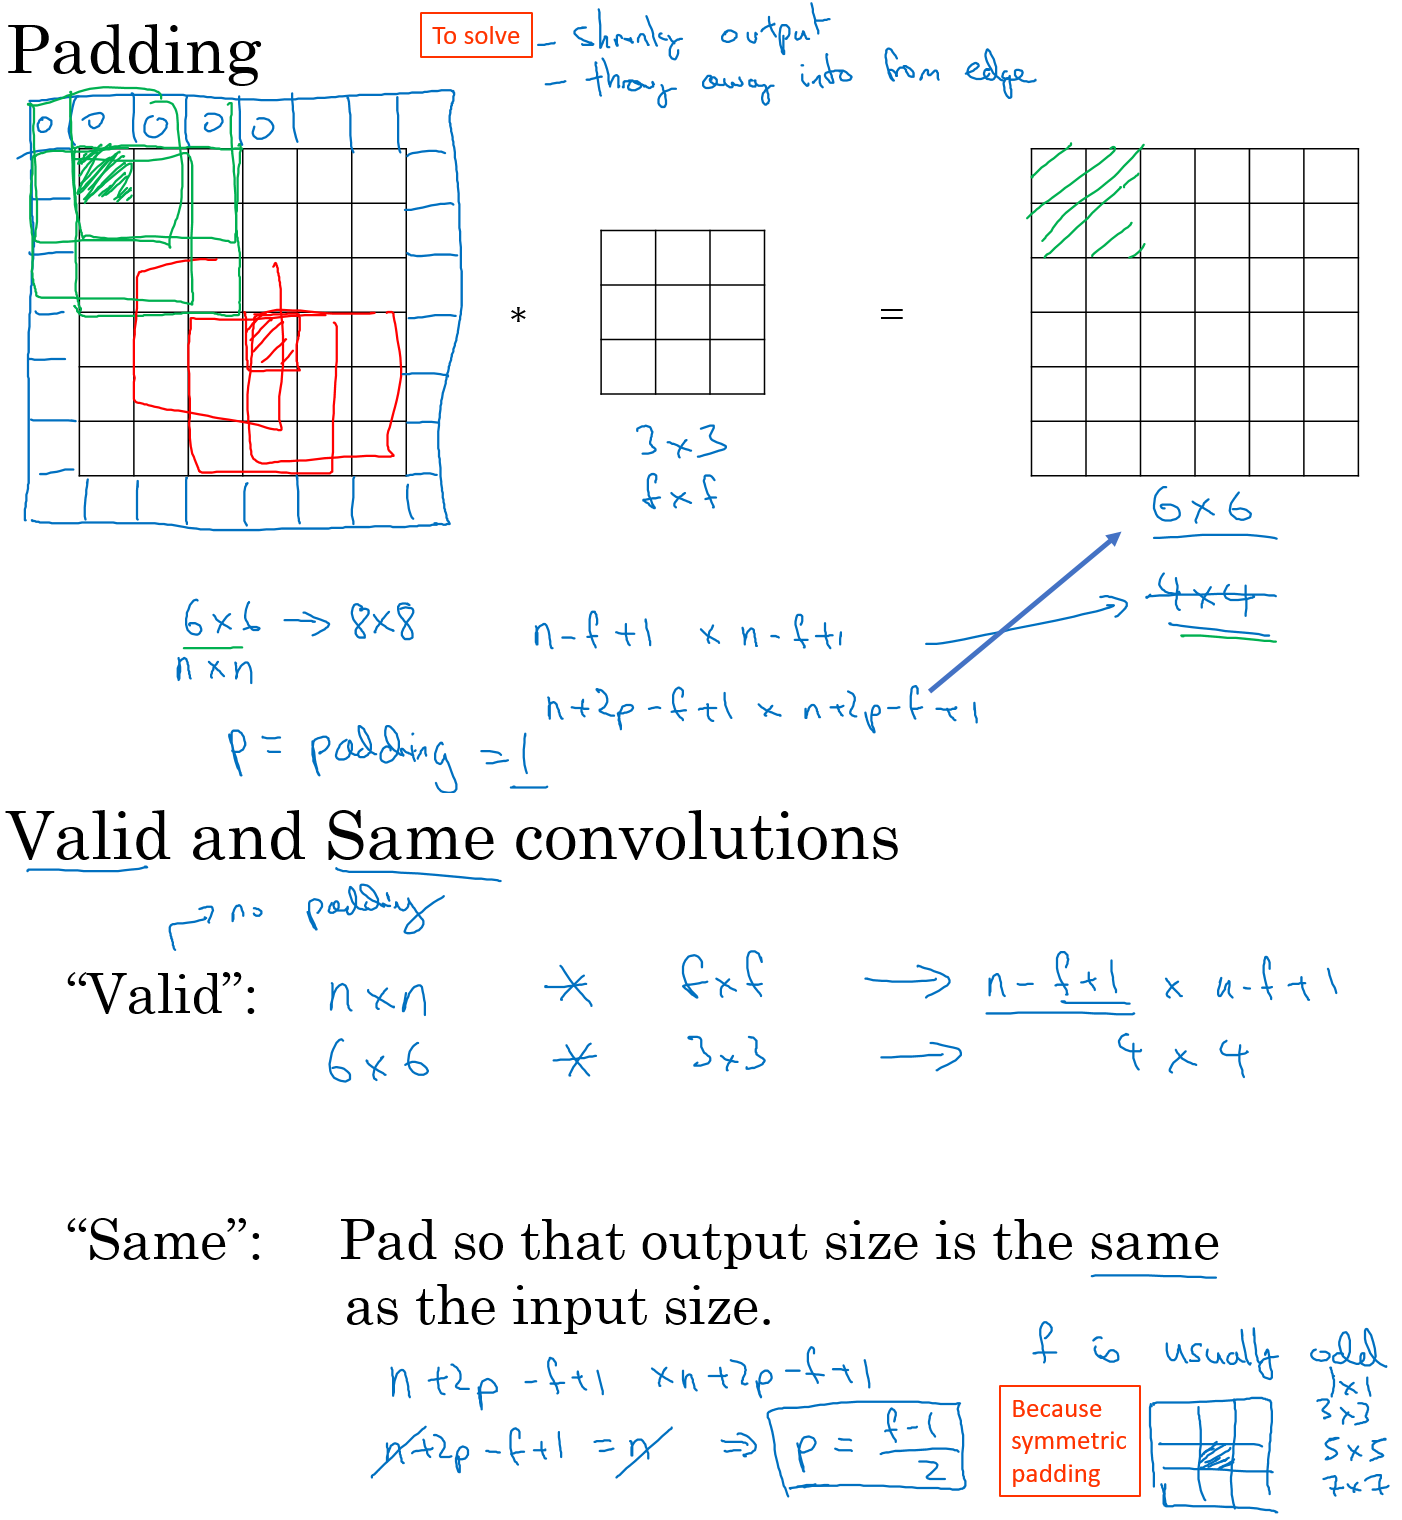 Padding
To solve
- shrinky output
- throwy away info from edge
0 0 0 0 0
* =
3 x 3
f x f
6 x 6
4 x 4
6 x 6 → 8x8
n x n
n-f+1 x n-f+1
n+2p-f+1 x n+2p-f+1
p = padding = 1
Valid and Same convolutions
→ no padding
“Valid”: n x n * f x f → n-f+1 x n-f+1
6 x 6 * 3 x 3 → 4 x 4
“Same”: Pad so that output size is the same
as the input size.
n+2p-f+1 x n+2p-f+1
n+2p-f+1 = n ⇒ p = (f-1)/2
f is usually odd
1x1
3x3
5x5
7x7
Because
symmetric
padding